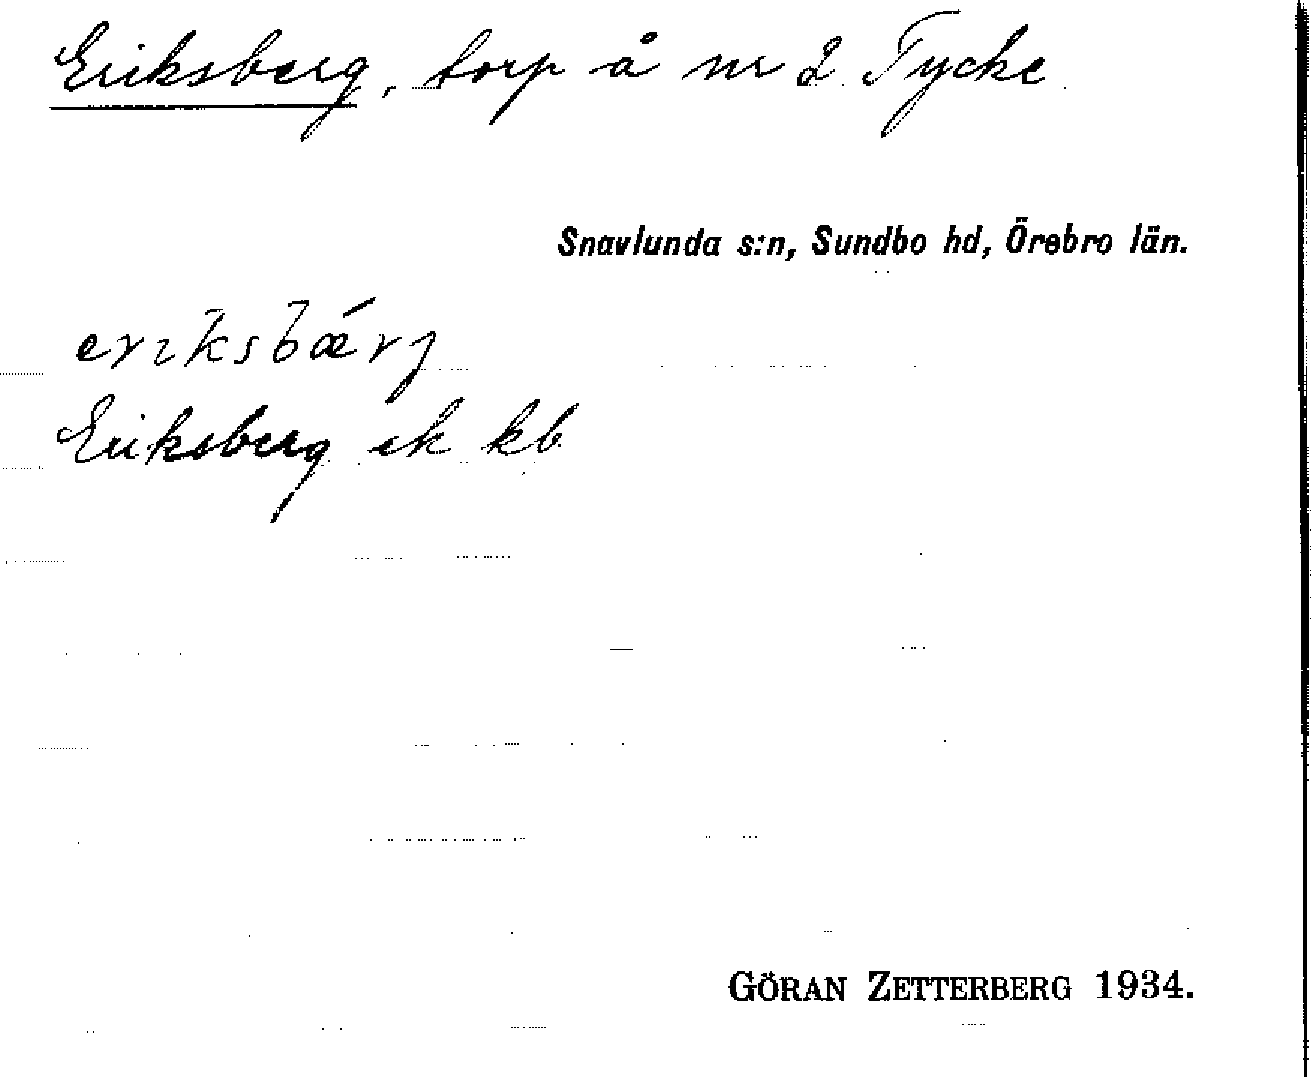 Eriksberg, torp å nr 2 Tycke
Snavlunda s:n, Sundbo hd, Örebro län.
eriksbǽrj
Eriksberg ek kb
GÖRAN ZETTERBERG 1934.